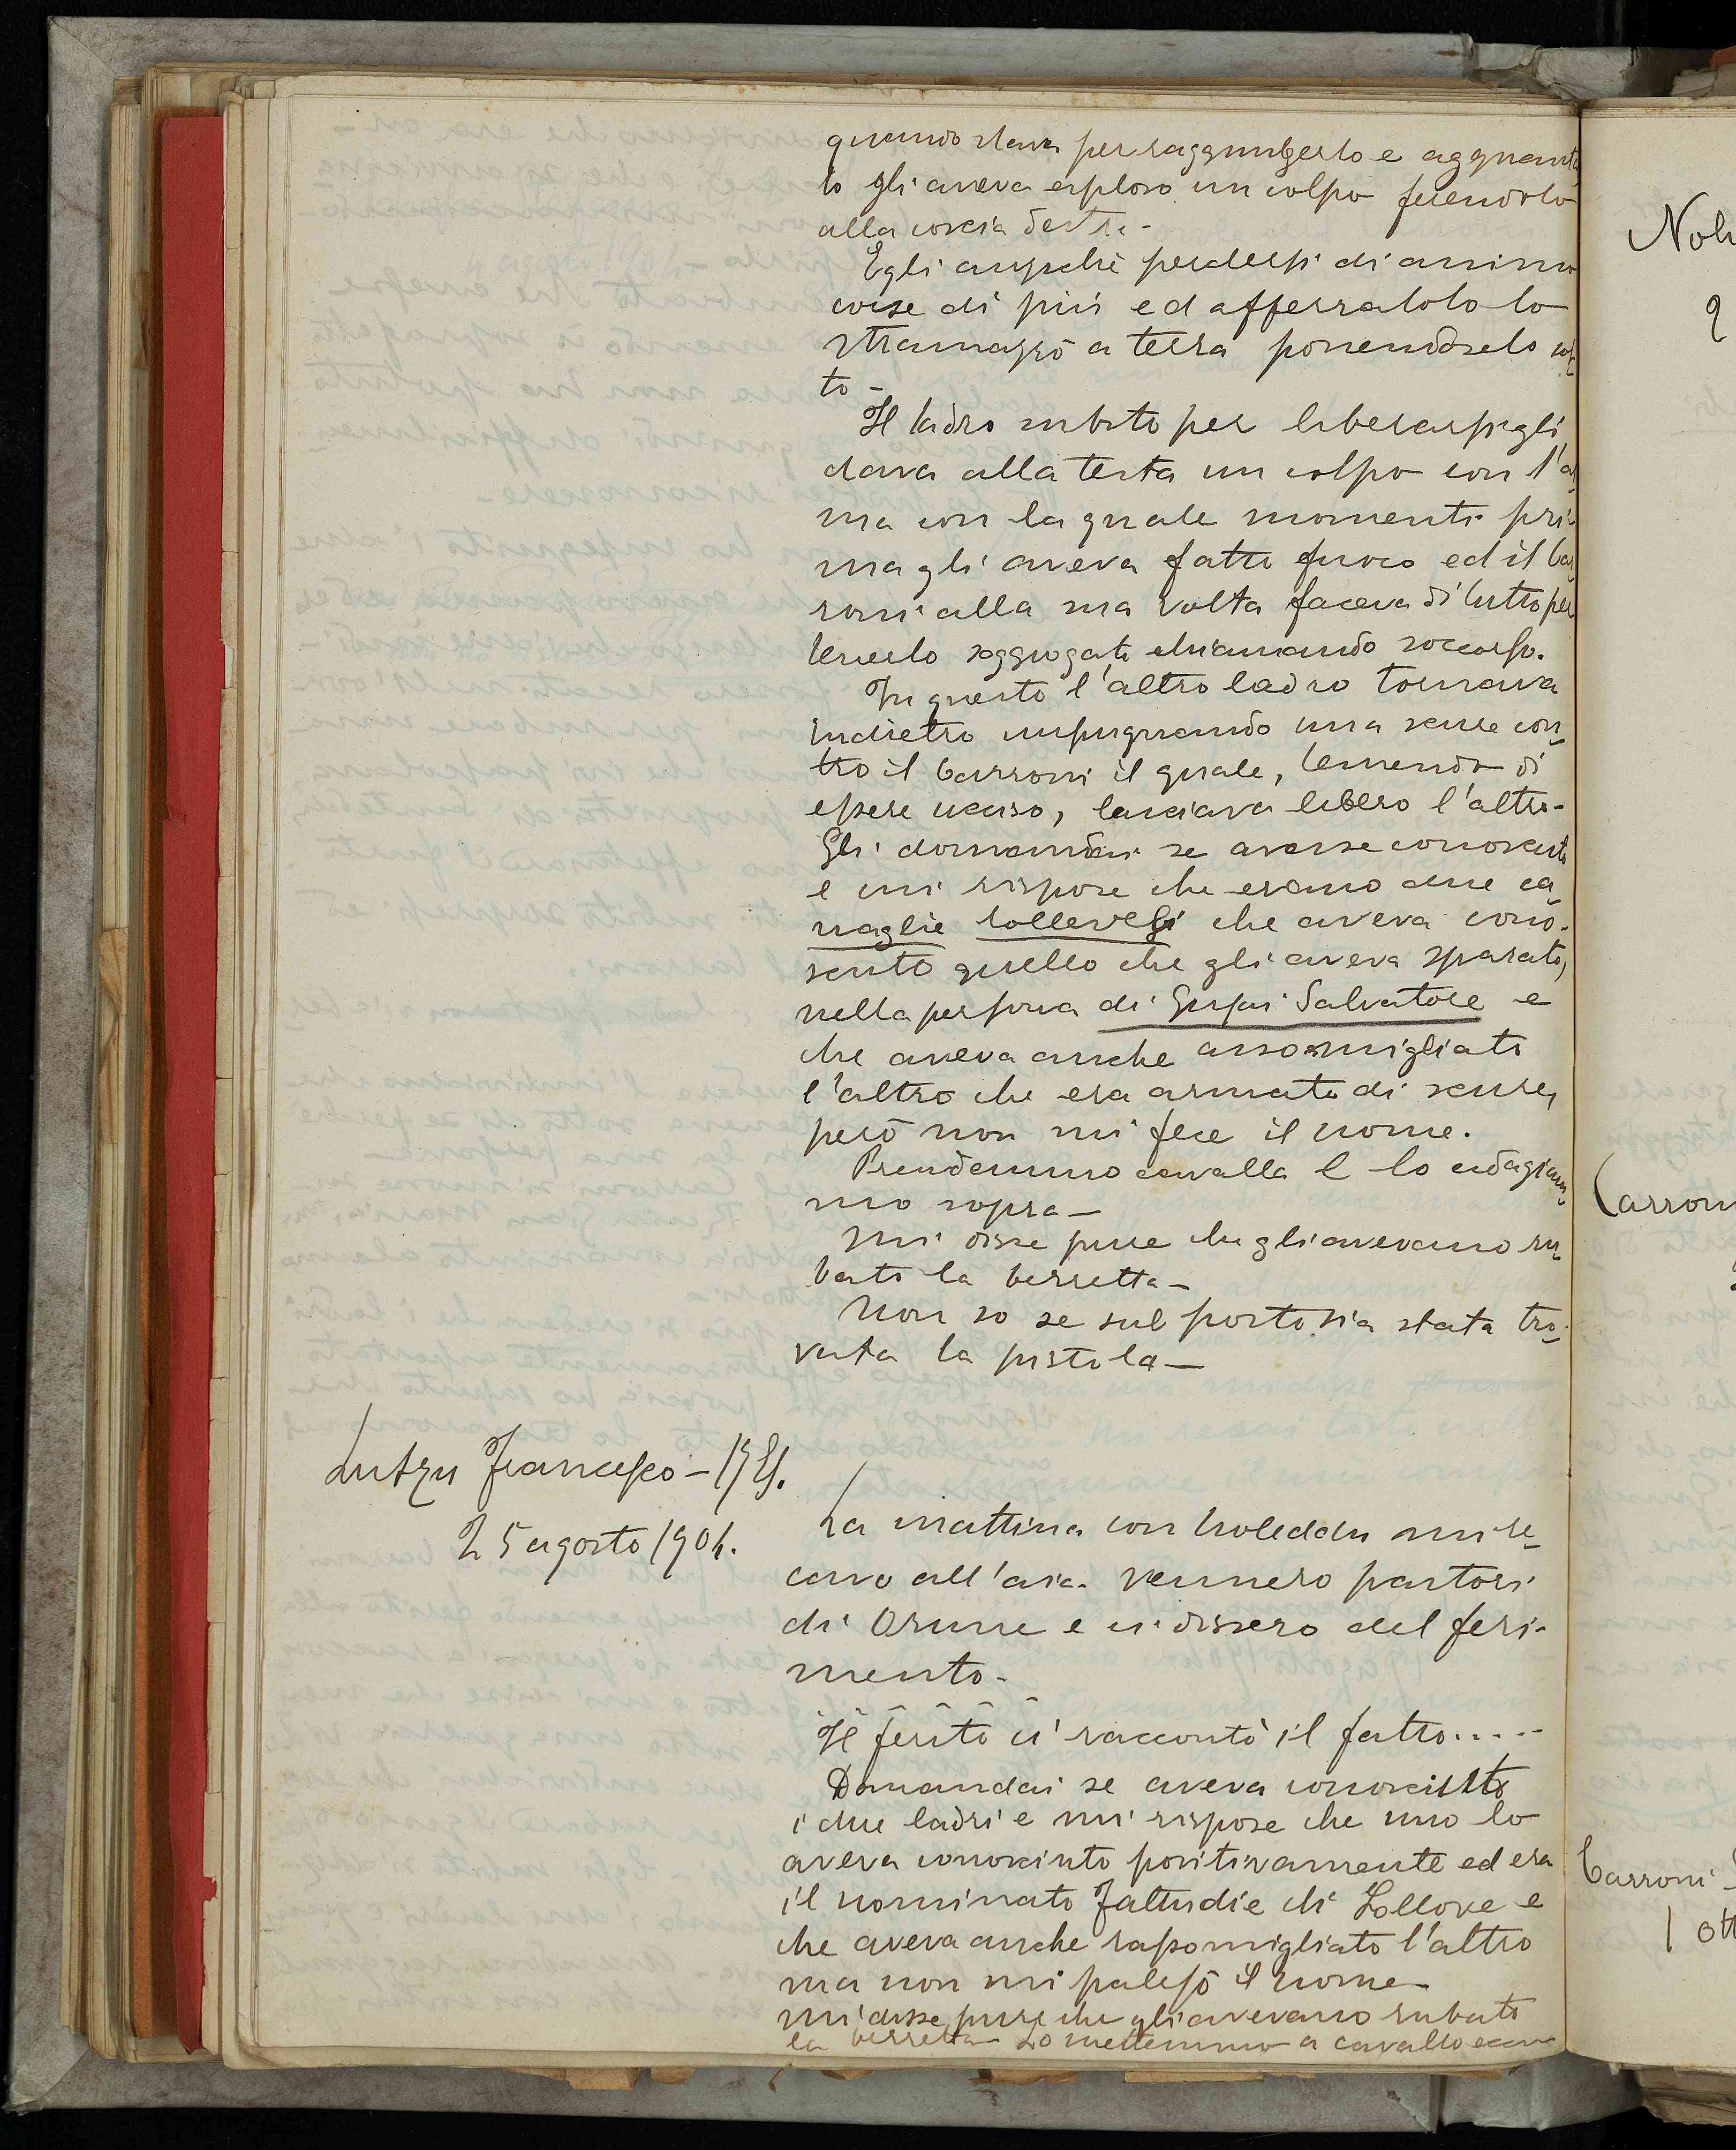 quando stava per raggiungerlo e agguantar
lo gli aveva esploso un colpo ferendolo
alla coscia destra -
Egli anzichè perdersi di animo
corse di più ed afferratolo lo
stramazzò a terra ponendoselo sot
to -
Il ladro subito per liberarsi gli
dava alla testa un colpo con l'ar
ma con la quale momenti pri
ma gli aveva fatto fuoco ed il Car
roni alla sua volta faceva di tutto per
tenerlo soggiogato chiamando soccorso.
In questo l'altro ladro tornava
indietro impugnando una scure con
tro il Carroni il quale, temendo di
essere ucciso, lasciava libero l'altro -
Gli domandai se avesse conosciuto
e mi rispose che erano due ca
naglie lollovesi che aveva cono-
sciuto quello che gli aveva sparato,
nella persona di Salvatore e
che aveva anche assomigliato
l'altro che era armato di scure,
però non mi fece il nome.
Prendemmo cavalla e lo adagiam
mo sopra -
Mi disse pure che gli avevano ru
bato la berretta -
Non so se sul posto sia stata tro-
vata la pistola -
Lutzu Francesco -
25 agosto 1904.
La mattina con Noleddu mi re
cavo all'aia. Vennero pastori
di Orune e ci dissero del feri-
mento -
Il ferito ci raccontò il fatto.....
Domandai se aveva conosciuto
i due ladri e mi rispose che uno lo
aveva conosciuto positivamente ed era
il nominato di Lollove e
che aveva anche rassomigliato l'altro
ma non mi palesò il nome -
Mi disse pure che gli avevano rubato
la berretta - Lo mettemmo a cavallo
Carroni
Carroni
1 ott